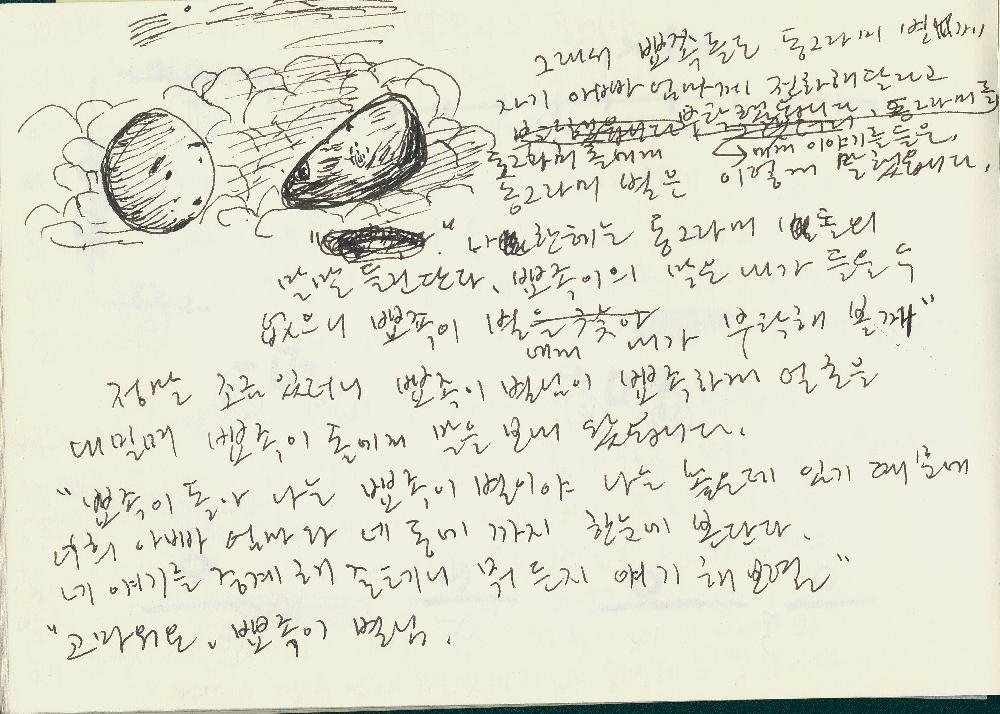 그래서 뾰쪽돌도 동그라미 별님께
자기 아빠 엄마께 전화해달라고
부탁했답니다. 동그라미를
동그라미 돌에게 에게 이야기를 들은
동그라미 별은 이렇게 말했답니다.
" " 나한테는 동그라미 돌의
말만 들린단다. 뾰쪽이의 말은 내가 들을 수
없으니 뾰쪽이 별을 찾아
에게 내가 부탁해 볼께"
정말 조금 있더니 뾰쪽이 별님이 뾰쪽하게 얼굴을
내밀며 뾰쪽이 돌에게 말을 보내 왔답니다.
"뾰쪽이 돌아 나는 뾰쪽이 별이야 나는 높은데 있기 때문에
너희 아빠 엄마랑 네 동네 까지 한눈에 본단다.
네 얘기를 중계해 줄테니 뭐든지 얘기해 보렴"
"고마워요. 뾰쪽이 별님.